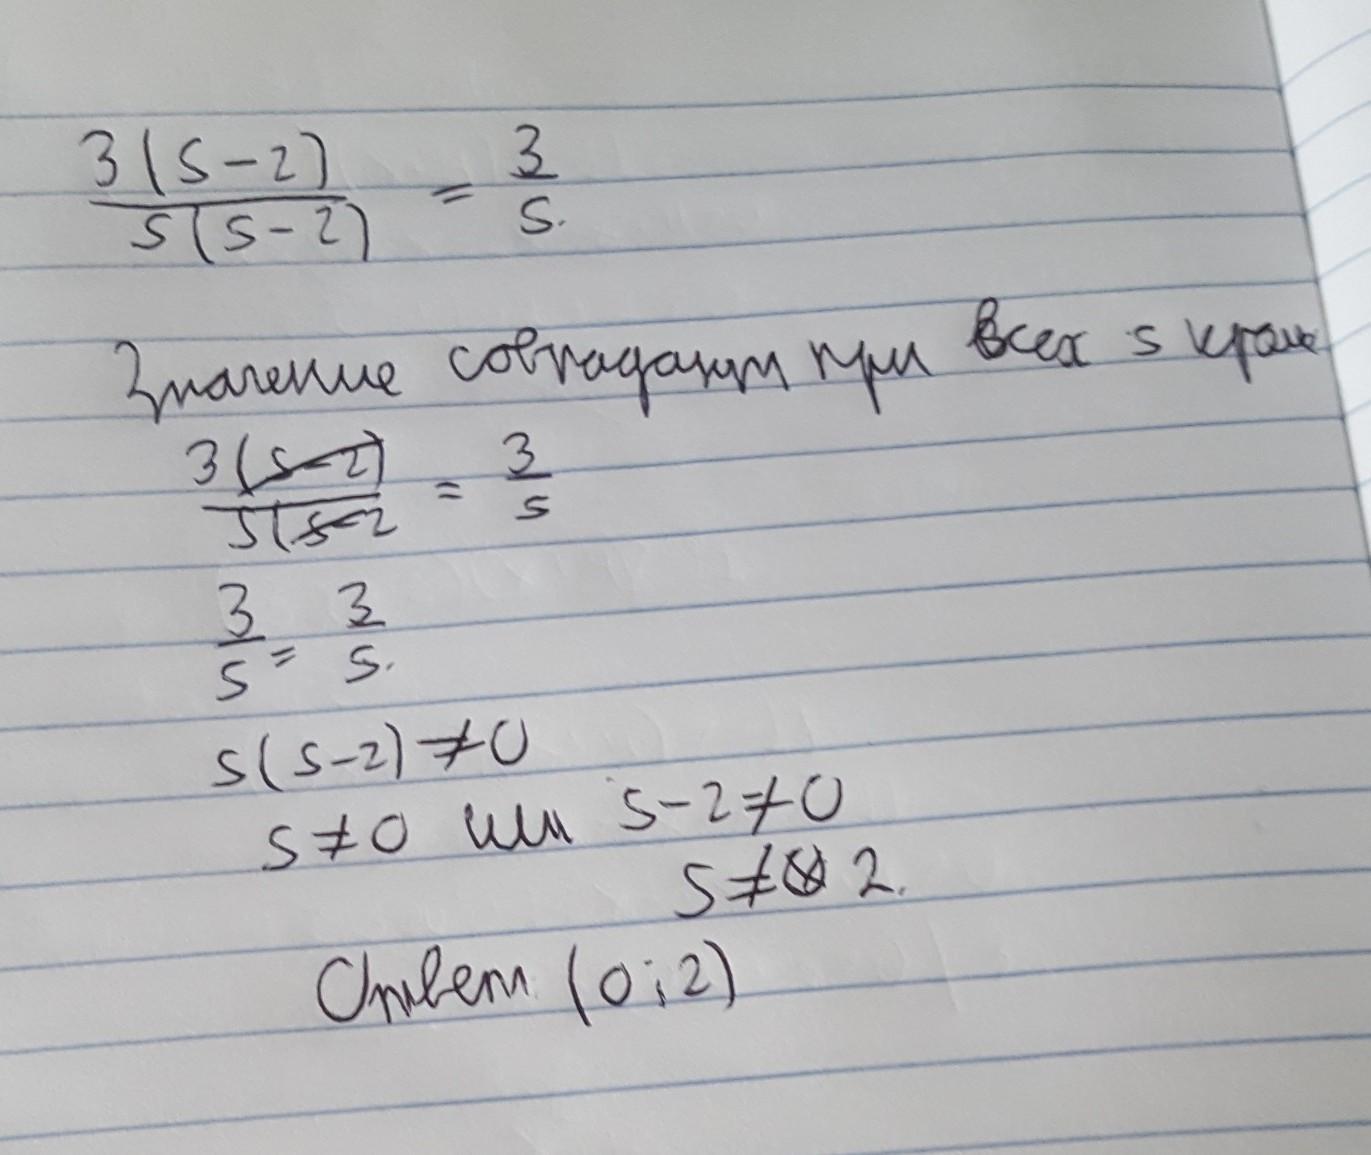 3(s-2)/s(s-2) = 3/s.
Значение совпадают при всех s кроме
3(s-2)/s(s-2 = 3/s
3/s = 3/s.
s(s-2) ≠ 0
s ≠ 0 или s-2 ≠ 0
s ≠ 2.
Ответ (0;2)